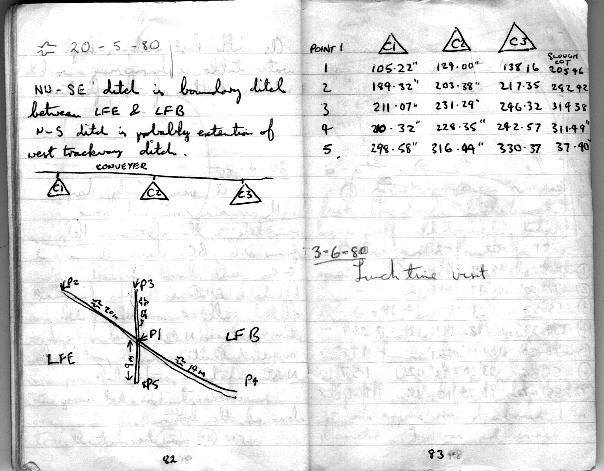 20-5-80
NW-SE ditch is boundary ditch
between LFE & LFB
N-S ditch is probably extention of
west trackway ditch.
CONVEYER
C1 C2 C3
P2 P3
20m
P1 LFB
LFE
9m 19m
P5 P4
82
POINT C1 C2 C3 SLOUGH COT
1 105.22" 129.00" 138 16 205 46
2 189.32" 203.38" 217.35 292 92
3 211.07" 231.29" 246.32 314 38
4 210.32" 228.35" 242.57 311.49"
5 298.58" 316.44" 330.37 37.40"
3-6-80
Lunch time visit
83